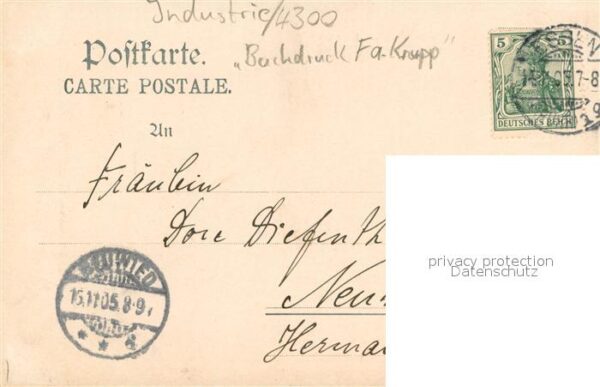 Industrie/4300
„Buchdruck Fa. Krupp"
Postkarte.
CARTE POSTALE.
5
DEUTSCHES REICH
7-8
An
Fräulein
Dore Diefenth
Neu
Herma
NEUWIED
15.11.05.8-9V
privacy protection
Datenschutz